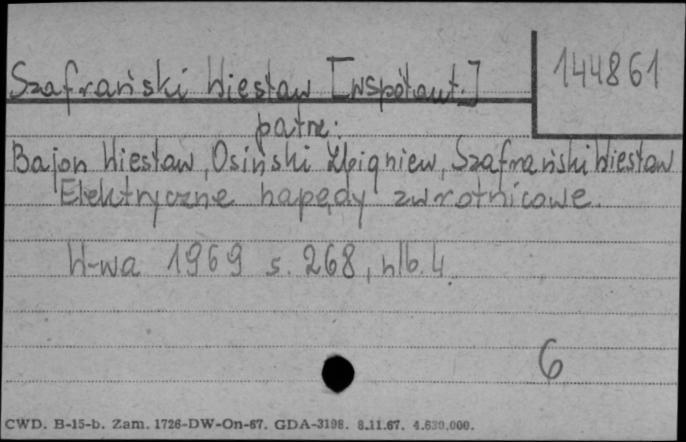 144861
Szafrański Wiesław [współaut.]
patrz:
Bajon Wiesław, Osiński Zbigniew, Szafrański Wiesław
Elektryczne napędy zwrotnicowe.
W-wa 1969 s. 268, nlb. 4.
6
CWD. B-15-b. Zam. 1726-DW-On-67. GDA-3198. 8.11.67. 4.630.000.